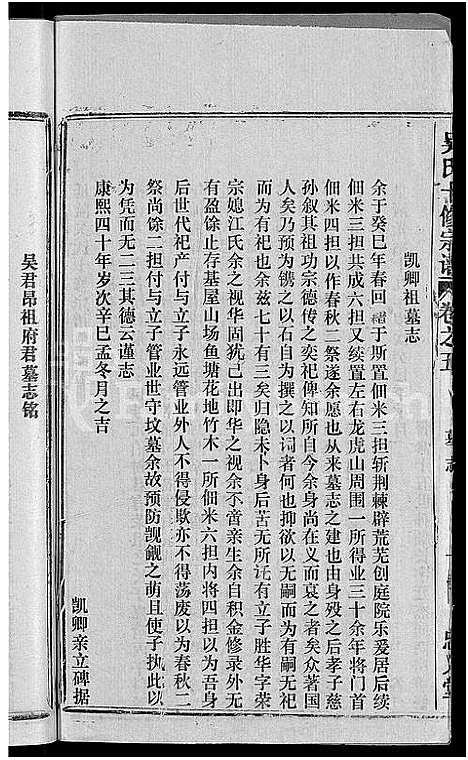 吴氏十修宗谱
卷之五
墓志
凯卿祖墓志
余于癸巳年春回籍于斯置佃米三担斩荆棘辟荒芜创庭院乐爰居后续
佃米三担共成六担又续置左右龙虎山周围一所得业三十余年将门首
佃米四担以作春秋二祭遂余愿也从来墓志之建也由身殁之后孝子慈
孙叙其祖功宗德传之奕祀俾知所自今余身尚在义而哀之者矣众著国
人矣乃预为镌之以石自为撰之以词者何也抑欲以无嗣而为有嗣无祀
而为有祀也余兹七十有三矣归隐未卜身后苦无所托有立子胜华字荣
宗媳江氏余之视华固犹己出即华之视余不啻亲生余自积金修录外无
有盈馀止存基屋山场鱼塘花地竹木一所佃米六担内将四担以为吾身
后世代祀产付与立子永远管业外人不得侵欺亦不得荡废以为春秋二
祭尚馀二担付与立子管业世守坟墓余故预防觊觎之萌且使子执此以
为凭而无二三其德云谨志
康熙四十年岁次辛巳孟冬月之吉
凯卿亲立碑据
吴君昂祖府君墓志铭